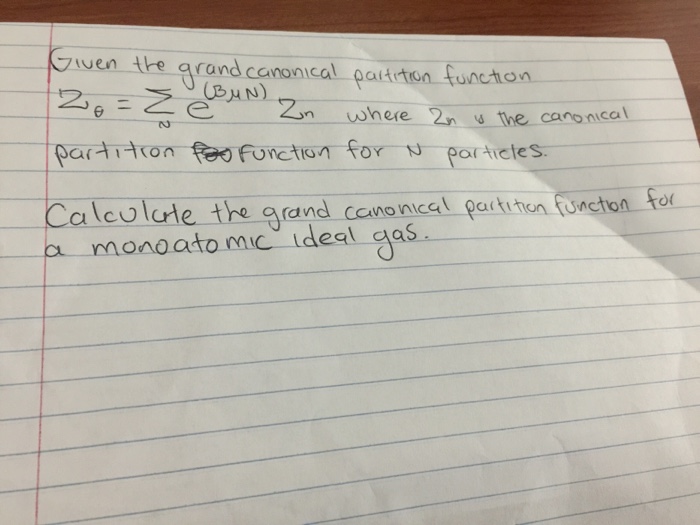 Given the grand canonical partition function
Z_θ = Σ_N e^(βμN) Z_n where Z_n is the canonical
partition function for N particles.
Calculate the grand canonical partition function for
a monoatomic ideal gas.